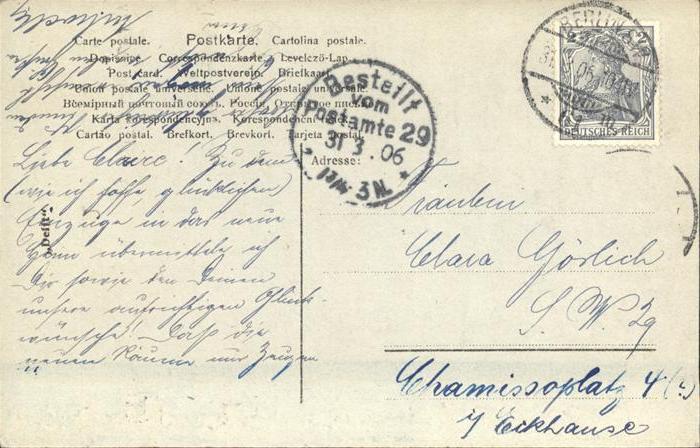 Carte postale. Postkarte. Cartolina postale.
Dopisnice. Correspondenzkarte. Levelező-Lap.
Post card. Weltpostverein. Briefkaart.
Union postale universelle. Unione postale universale.
Всемірный почтовый союзъ. Россія. Открытое письмо.
Karta korespondencyjna. Korespondenční
Cartão postal. Brefkort. Brevkort. Tarjeta postal.
Adresse:
Bestellt
vom
Postamte 29
31 3. 06
3 N.
BERLIN
DEUTSCHES REICH
„Delft“
Liebe Claire! Zu dem
(wie ich hoffe, glücklichen)
Einzuge in das neue
Heim übermittele ich
Dir sowie den Deinen
unsere aufrichtigen Glück-
wünsche! Daß die
neuen Räume nur Zeugen
Fräulein
Clara Görlich
S. W. 29
Chamissoplatz 4
i/ Eckhause